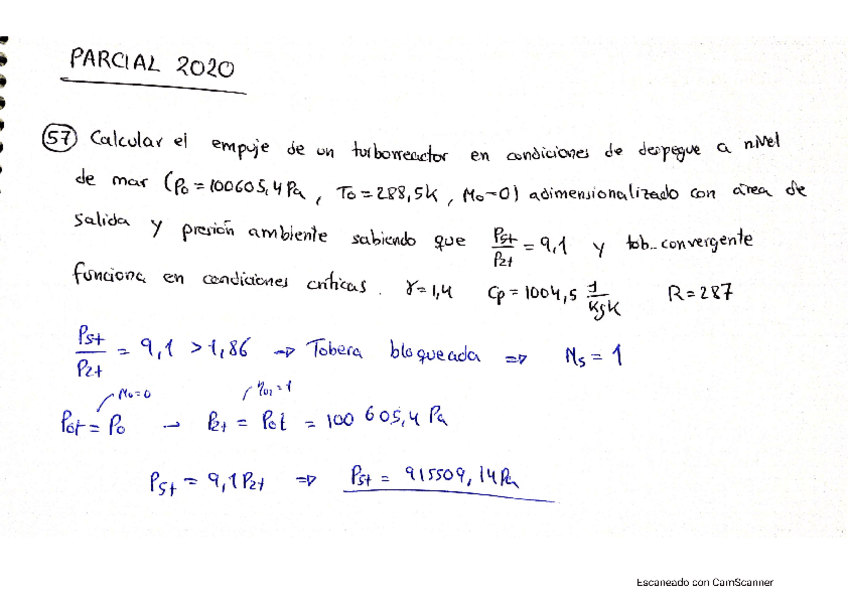 PARCIAL 2020
57 Calcular el empuje de un turborreactor en condiciones de despegue a nivel
de mar (P0 = 100605,4 Pa , T0 = 288,5K , M0=0) adimensionalizado con area de
salida y presión ambiente sabiendo que P5t/P2t = 9,1 y tob. convergente
funciona en condiciones críticas. γ=1,4 Cp = 1004,5 J/KgK R = 287
P5t/P2t = 9,1 > 1,86 → Tobera bloqueada ⇒ M5 = 1
M0=0
P0t = P0 → P2t = P0t = 100 605,4 Pa
P5t = 9,1 P2t ⇒ P5t = 915509,14 Pa
Escaneado con CamScanner